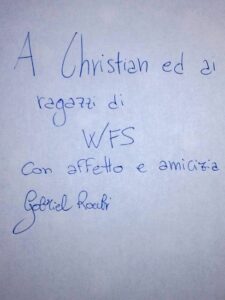 A Christian ed ai
ragazzi di
WFS
Con affetto e amicizia
Gabriel